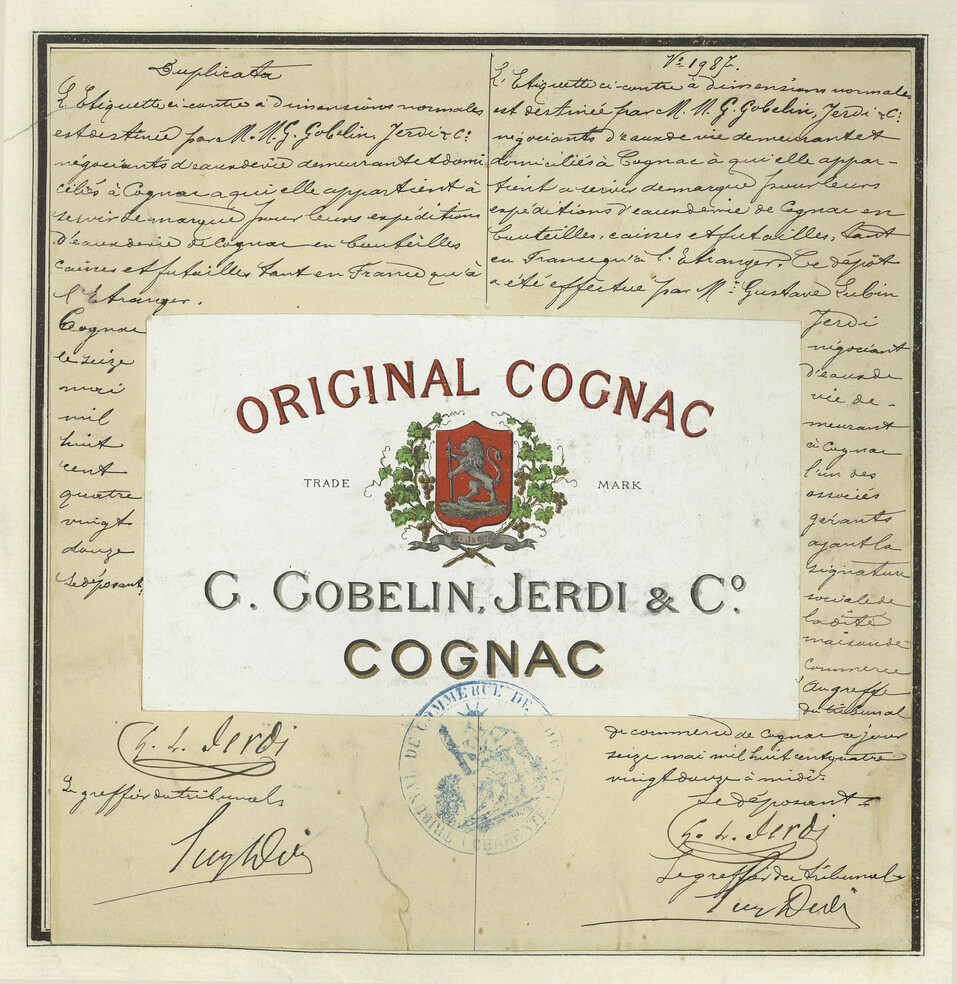 Duplicata
L'Etiquette ci-contre à dimensions normales
est destinée par M. M. G. Gobelin, Jerdi & Cº
négociants d'eaux de vie demeurant et domi
ciliés à Cognac a qui elle appartient à
servir de marque pour leurs expéditions
d'eaux de vie de Cognac en bouteilles
caisses et futailles tant en France qu'à
l'Etranger.
Cognac
le seize
mai
mil
huit
cent
quatre
vingt
douze
Le déposant
G. L. Jerdi
Le greffier du tribunal
Nº 1987.
L'Etiquette ci-contre à dimensions normales
est destinée par M. M. G. Gobelin, Jerdi & Cº
négociants d'eaux de vie demeurant et
domiciliés à Cognac à qui elle appar-
tient a servir de marque pour leurs
expéditions d'eaux de vie de Cognac en
bouteilles, caisses et futailles, tant
en France qu'à l'Etranger. Ce dépôt
a été effectué par Mr Gustave Lubin
Jerdi
négociant
d'eaux de
vie de-
meurant
à Cognac
l'un des
associés
gérants
ayant la
signature
sociale de
la dite
maison de
commerce
Au greffe
du tribunal
de commerce de Cognac ce jour
seize mai mil huit cent quatre
vingt douze à midi.
Le déposant
G. L. Jerdi
Le greffier du tribunal
ORIGINAL COGNAC
TRADE MARK
G. GOBELIN, JERDI & Cº.
COGNAC
TRIBUNAL DE COMMERCE DE COGNAC
CHARENTE